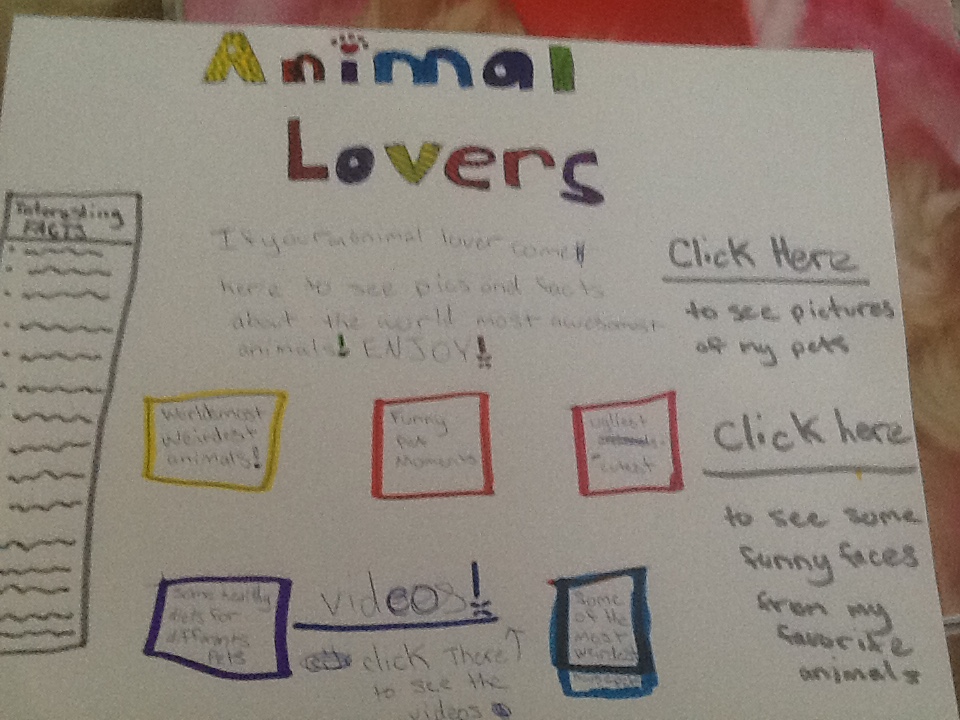 Animal
Lovers
Interesting
FACTS
If your animal lover come
here to see pics and facts
about the world most awesomest
animals! ENJOY!
Click Here
to see pictures
of my pets
World most
Weirdest
animals!
Funny
pet
Moments
ugliest
cutest
Click here
to see some
funny faces
from my
favorite
animals
some healty
diets for
differints
pets
videos!
click There
to see the
videos
Some
of the
most
weirdest